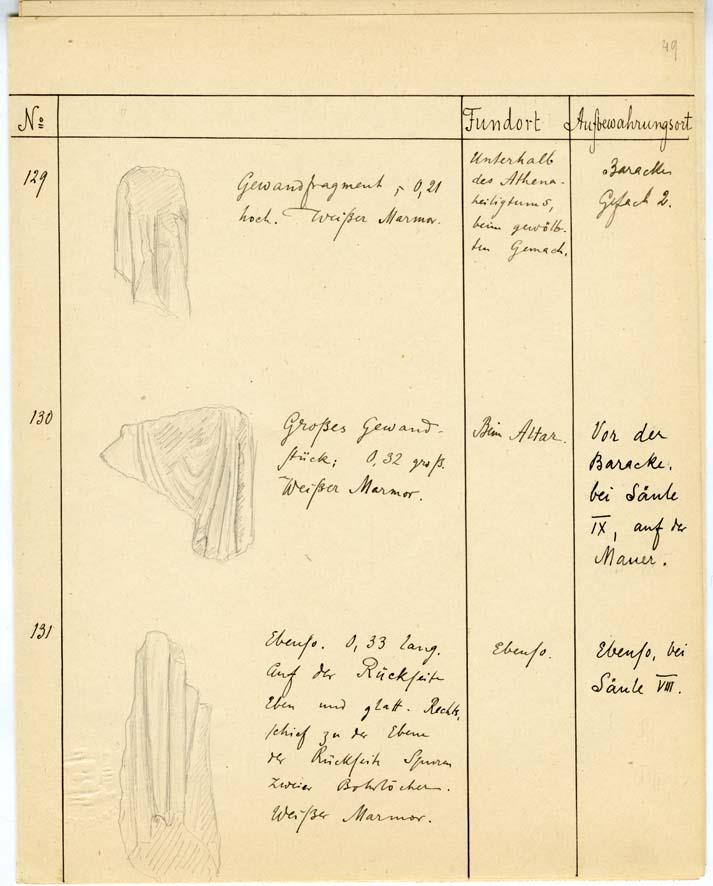 49
No Fundort Aufbewahrungsort
129
Gewandfragment, 0,21
hoch. Weißer Marmor.
Unterhalb
des Athena-
heiligtums,
beim gewölb-
ten Gemach.
Baracke
Gefach 2.
130
Großes Gewand-
stück; 0,32 groß.
Weißer Marmor.
Beim Altar.
Vor der
Baracke,
bei Säule
IX, auf der
Mauer.
131
Ebenso. 0,33 lang.
Auf der Rückseite
Eben und glatt. Rechts,
schief zu der Ebene
der Rückseite Spuren
zweier Bohrlöcher.
Weißer Marmor.
Ebenso.
Ebenso, bei
Säule VIII.